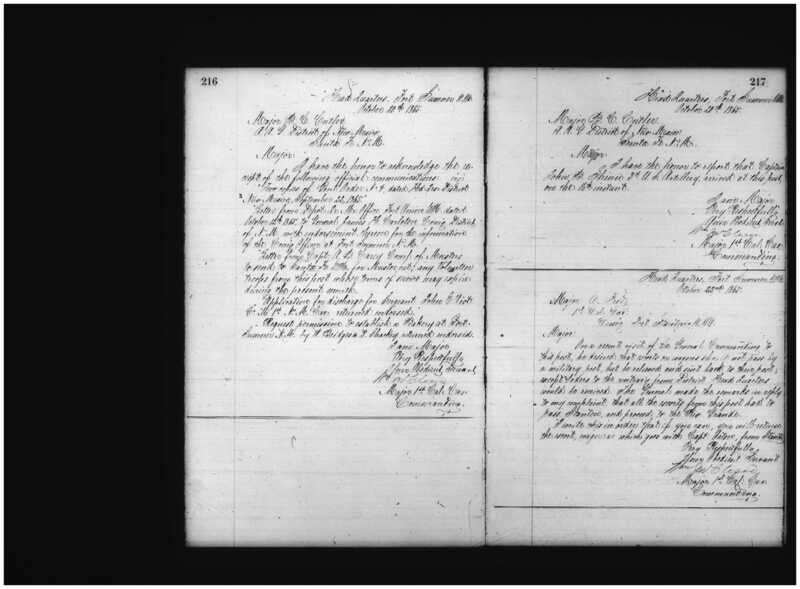 216
Head Quarters, Fort Sumner N.M.
October 20th 1865.
Major
A. A. G. District of New Mexico
Santa Fe N.M.
Major.
I have the honor to acknowledge the re-
ceipt of the following official communications
copies of Genl Order No 4, dated Hd Qrs District
New Mexico, September 22, 1865.
Letter from Office Fort Union N.M. dated
October 12th 1865, to General James H. Carleton Comg District
of N.M. with endorsement hereon for the information
of the Comg Officer at Fort Sumner N.M.
Letter from Capt. A. B. Carey Comy. of Musters
to send to Santa Fe N.M. for Muster out, any Volunteer
troops from this post whose terms of service may expire
during the present month.
Application for discharge for Sergeant John
1st N.M. Cav. returned endorsed.
Request permission to establish a Bakery at Fort
Sumner N.M. by returned endorsed.
I am Major
Very Respectfully
Your Obedient Servant,
Major 1st Cal. Cav.
Commanding.
217
Head Quarters, Fort Sumner N.M.
October 20th 1865.
Major
A. A. G District of New Mexico
Santa Fe N.M.
Major
I have the honor to report that Captain
John 3d U.S. Artillery, arrived at this post,
on the 16th instant.
I am, Major
Very Respectfully
Your Obedient Servt.
Major 1st Cal. Cav.
Commanding.
Head Quarters, Fort Sumner N.M.
October 22nd 1865.
Major
1st Cav.
Comdg Fort Stanton, N.M.
Major:
On a recent visit of the General Commanding to
this post, he desired that escorts on wagons should not pass by
a military post, but be relieved and sent back to their post;
except orders to the contrary from District Head Quarters
would be received. The General made the remarks in reply
to my complaint, that all the escorts from this post had to
pass Stanton, and proceed, to the Rio Grande.
I write this in order that if you can, you will relieve
the escort, wagons which goes with Capt. from
Very Respectfully
Your Obedient Servant
Major 1st Cal. Cav
Commanding.